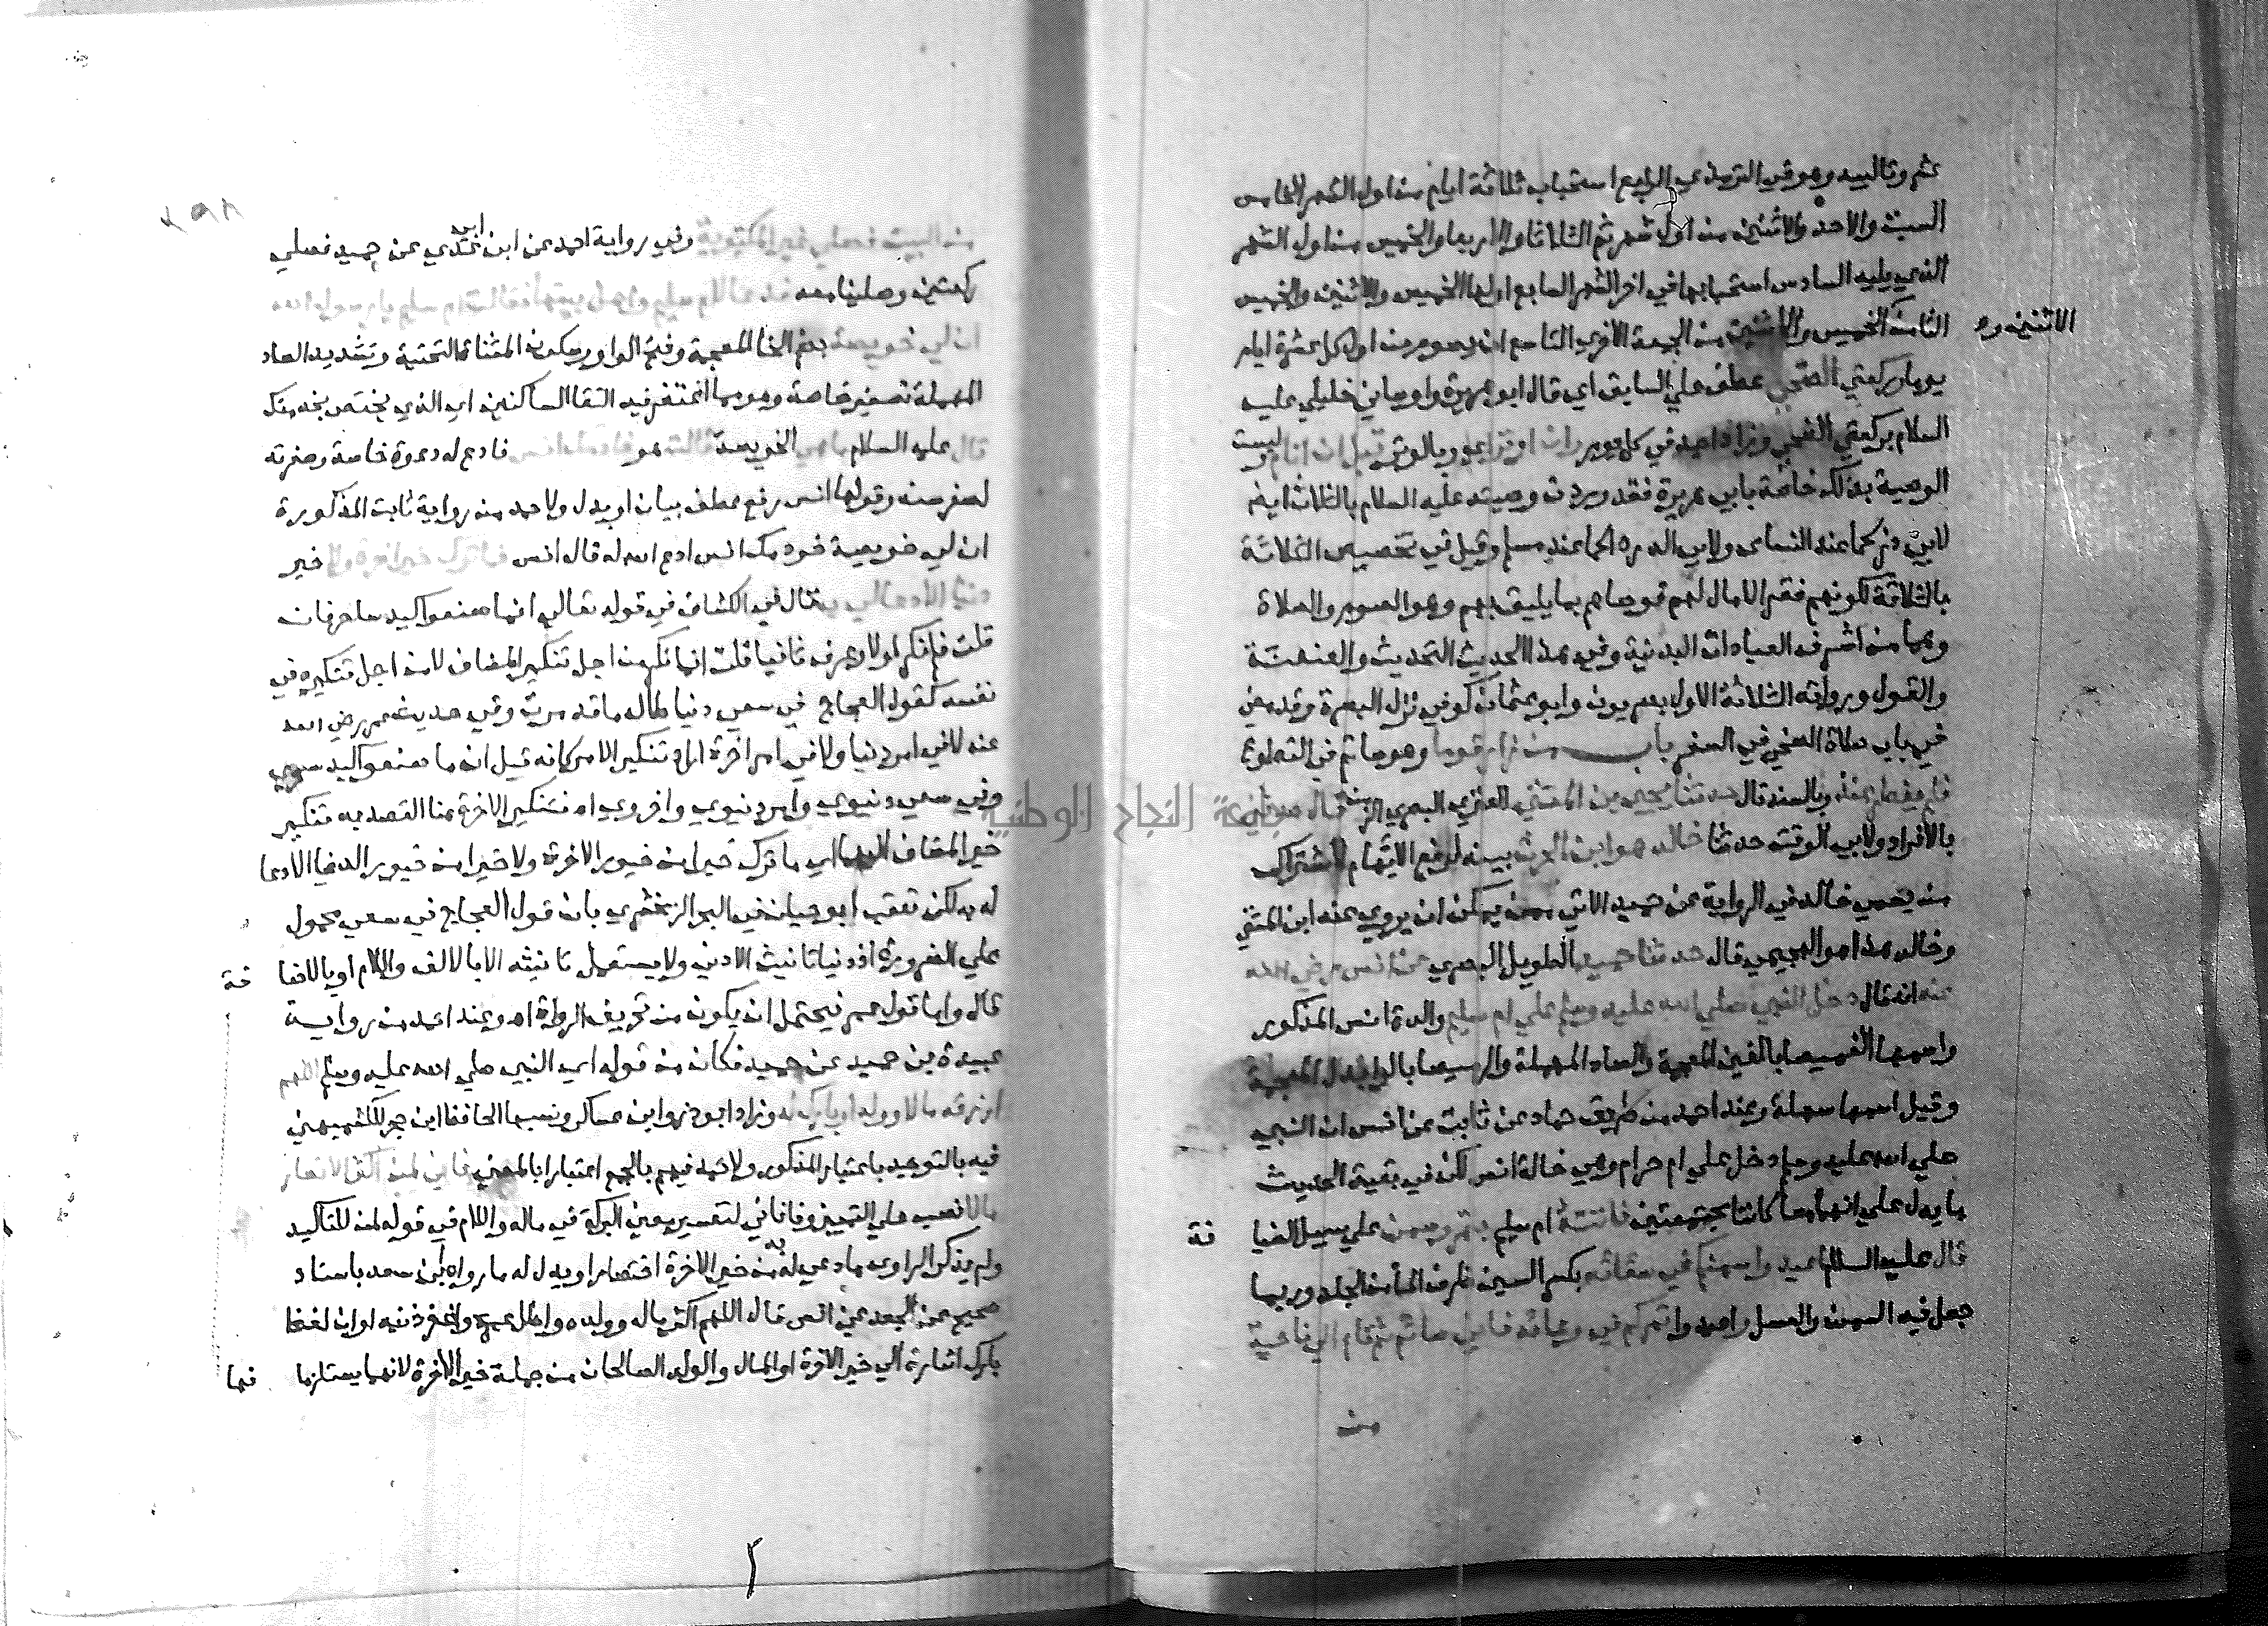 عشر وتالييه وهو في الترمذي الرابع استحباب ثلاثة ايام من اول الشهر الخامس
السبت والاحد والاثنين من اول شهر ثم الثلاثا والاربعا والخميس من اول الشهر
الذي يليه السادس استحبابها في اخر الشهر السابع اولها الخميس والاثنين والخميس
الاثنين و
الثامن الخميس والاثنين من الجمعة الاخري التاسع ان يصوم من اول كل عشرة ايام
يوما وركعتي الضحي عطف علي السابق اي قال ابو هريرة واوصاني خليلي عليه
السلام بركعتي الضحي وزاد احمد في كل يوم وان اوتر اي وبالوتر قبل ان انام وليست
الوصية بذلك خاصة بابي هريرة فقد وردت وصيته عليه السلام بالثلاث ايضا
لابي ذر كما عند النساى ولابي الدرداء كما عند مسلم وقيل في تخصيص الثلاثة
بالثلاثة لكونهم فقرا لا مال لهم فوصاهم بما يليق بهم وهو الصوم والصلاة
وهما من اشرف العبادات البدنية وفي هذا الحديث التحديث والعنعنة
والقول ورواته الثلاثة الاول بصريون وابو عثمان كوفي نزل البصرة وقد مضي
في باب صلاة الضحي في السفر باب من زار قوما وهو صائم في التطوع
فلم يفطر عندهم وبالسند قال حدثنا محمد بن المثني العنزي البصري الزمن قال حدثني
بالافراد ولابي الوقت حدثنا خالد هو ابن الحرث بينه لرفع الابهام لاشتراك
من يسمي خالد في الرواية عن حميد الاتي ممن يمكن ان يروي عنه ابن المثني
وخالد هذا هو الهجيمي قال حدثنا حميد الطويل البصري عن انس رضي الله
عنه انه قال دخل النبي صلي الله عليه وسلم علي ام سليم والدة انس المذكور
واسمها الغميصا بالغين المعجمة والصاد المهملة والرميصا بالراء بدل المعجمة
وقيل اسمها سهلة وعند احمد من طريق حماد عن ثابت عن انس ان النبي
صلي الله عليه وسلم دخل علي ام حرام وهي خالة انس لكن في بقية الحديث
ما يدل علي انهما معا كانتا مجتمعتين فاتته ام سليم بتمر وسمن علي سبيل الضيا فة
قال عليه السلام اعيدوا سمنكم في سقائه بكسر السين ظرف الماء من الجلد وربما
جعل فيه السمن والعسل واعيدوا تمركم في وعائه فاني صائم ثم قام الي ناحية
من
٢٩٨
من البيت فصلي غير المكتوبة وفي رواية احمد عن ابن ابي عدي عن حميد فصلي
ركعتين وصلينا معه
ان لي خويصة بضم الخا المعجمة وفتح الواو وسكون المثناة التحتية وتشديد الصاد
المهملة تصغير خاصة وهو مما اغتفر فيه التقا الساكنين اي الذي يختص بخدمتك
قال عليه السلام ما هي الخويصة قالت هو فادع له دعوة خاصة وصغرته
لصغر سنه وقولها انس رفع عطف بيان او بدل ولاحمد من رواية ثابت المذكورة
ان لي خويصة خويدمك انس ادع الله له قال انس خير
قال في الكشاف في قوله تعالي انما صنعوا كيد ساحر فان
قلت فلم نكر اولا وعرف ثانيا قلت انما نكر من اجل تنكير المضاف لا من اجل تنكيره في
نفسه كقول العجاج في سعي دنيا طال ما قد مرت وفي حديث عمر رضي الله
عنه لا في امر دنيا ولا في امر اخرة المراد تنكير الامر كانه قيل ان ما صنعوا كيد سحري
وفي سعي دنيوي وامر دنيوي واخروي اه فتنكير الاخرة هنا القصد به تنكير
خير المضاف اليها اي ما ترك خيرا من خيور الاخرة ولا خيرا من خيور الدنيا الا دعا
له به لكن تعقب ابو حيان في البحر الزمخشري بان قول العجاج في سعي محمول
علي الضرورة اذ دنيا تانيث الادني ولا يستعمل تانيثه الا بالالف واللام او بالاضا فة
قال واما قول عمر فيحتمل ان يكون من تحريف الرواة اه وعند احمد من رواية
عبيدة بن حميد عن حميد فكان من قوله اي النبي صلي الله عليه وسلم اللهم
ارزقه مالا وولدا وبارك له وزاد ابو ذر وابن عساكر ونسبها الحافظ ابن حجر للكشميهني
فيه بالتوحيد باعتبار المذكور ولاحمد فيهم بالجمع اعتبارا بالمعني فاني لمن اكثر الانصار
مالا نصب علي التمييز وفا فاني لتفسير معني البركة في ماله واللام في قوله لمن للتاكيد
ولم يذكر الراوي ما دعي له به من خير الاخرة اختصارا ويدل له ما رواه ابن سعد باسناد
صحيح عن الجعد عن انس قال اللهم اكثر ماله وولده واطل عمره واغفر ذنبه او ان لفظ
بارك اشارة الي خير الاخرة او المال والولد الصالحان من جملة خير الاخرة لانهما يستلزما فهما
جامعة النجاح الوطنية